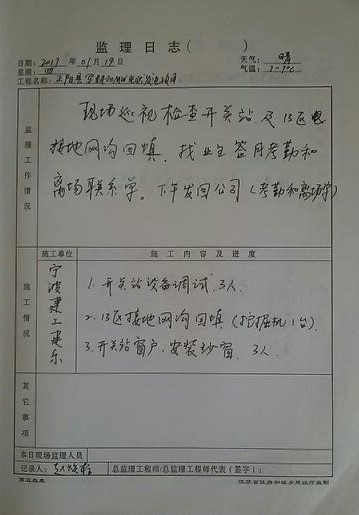 监理日志（ ）
日期： 2017 年 01 月 19 日 天气： 晴
星期： 四 气温： 1-9℃
工程名称：
监理工作情况
现场巡视检查开关站及13区
接地网沟回填，找业主签月考勤和
离场联系单。下午发回公司（考勤和离场单）
施工情况
施工单位 施工内容及进度
宁波建工建乐
1.开关站设备调试，3人.
2.13区接地网沟回填（挖掘机1台）.
3.开关站窗户，安装纱窗. 3人
其它事项
本日现场监理人员
记录人： 总监理工程师/总监理工程师代表（签字）：
江苏省住房和城乡建设厅监制